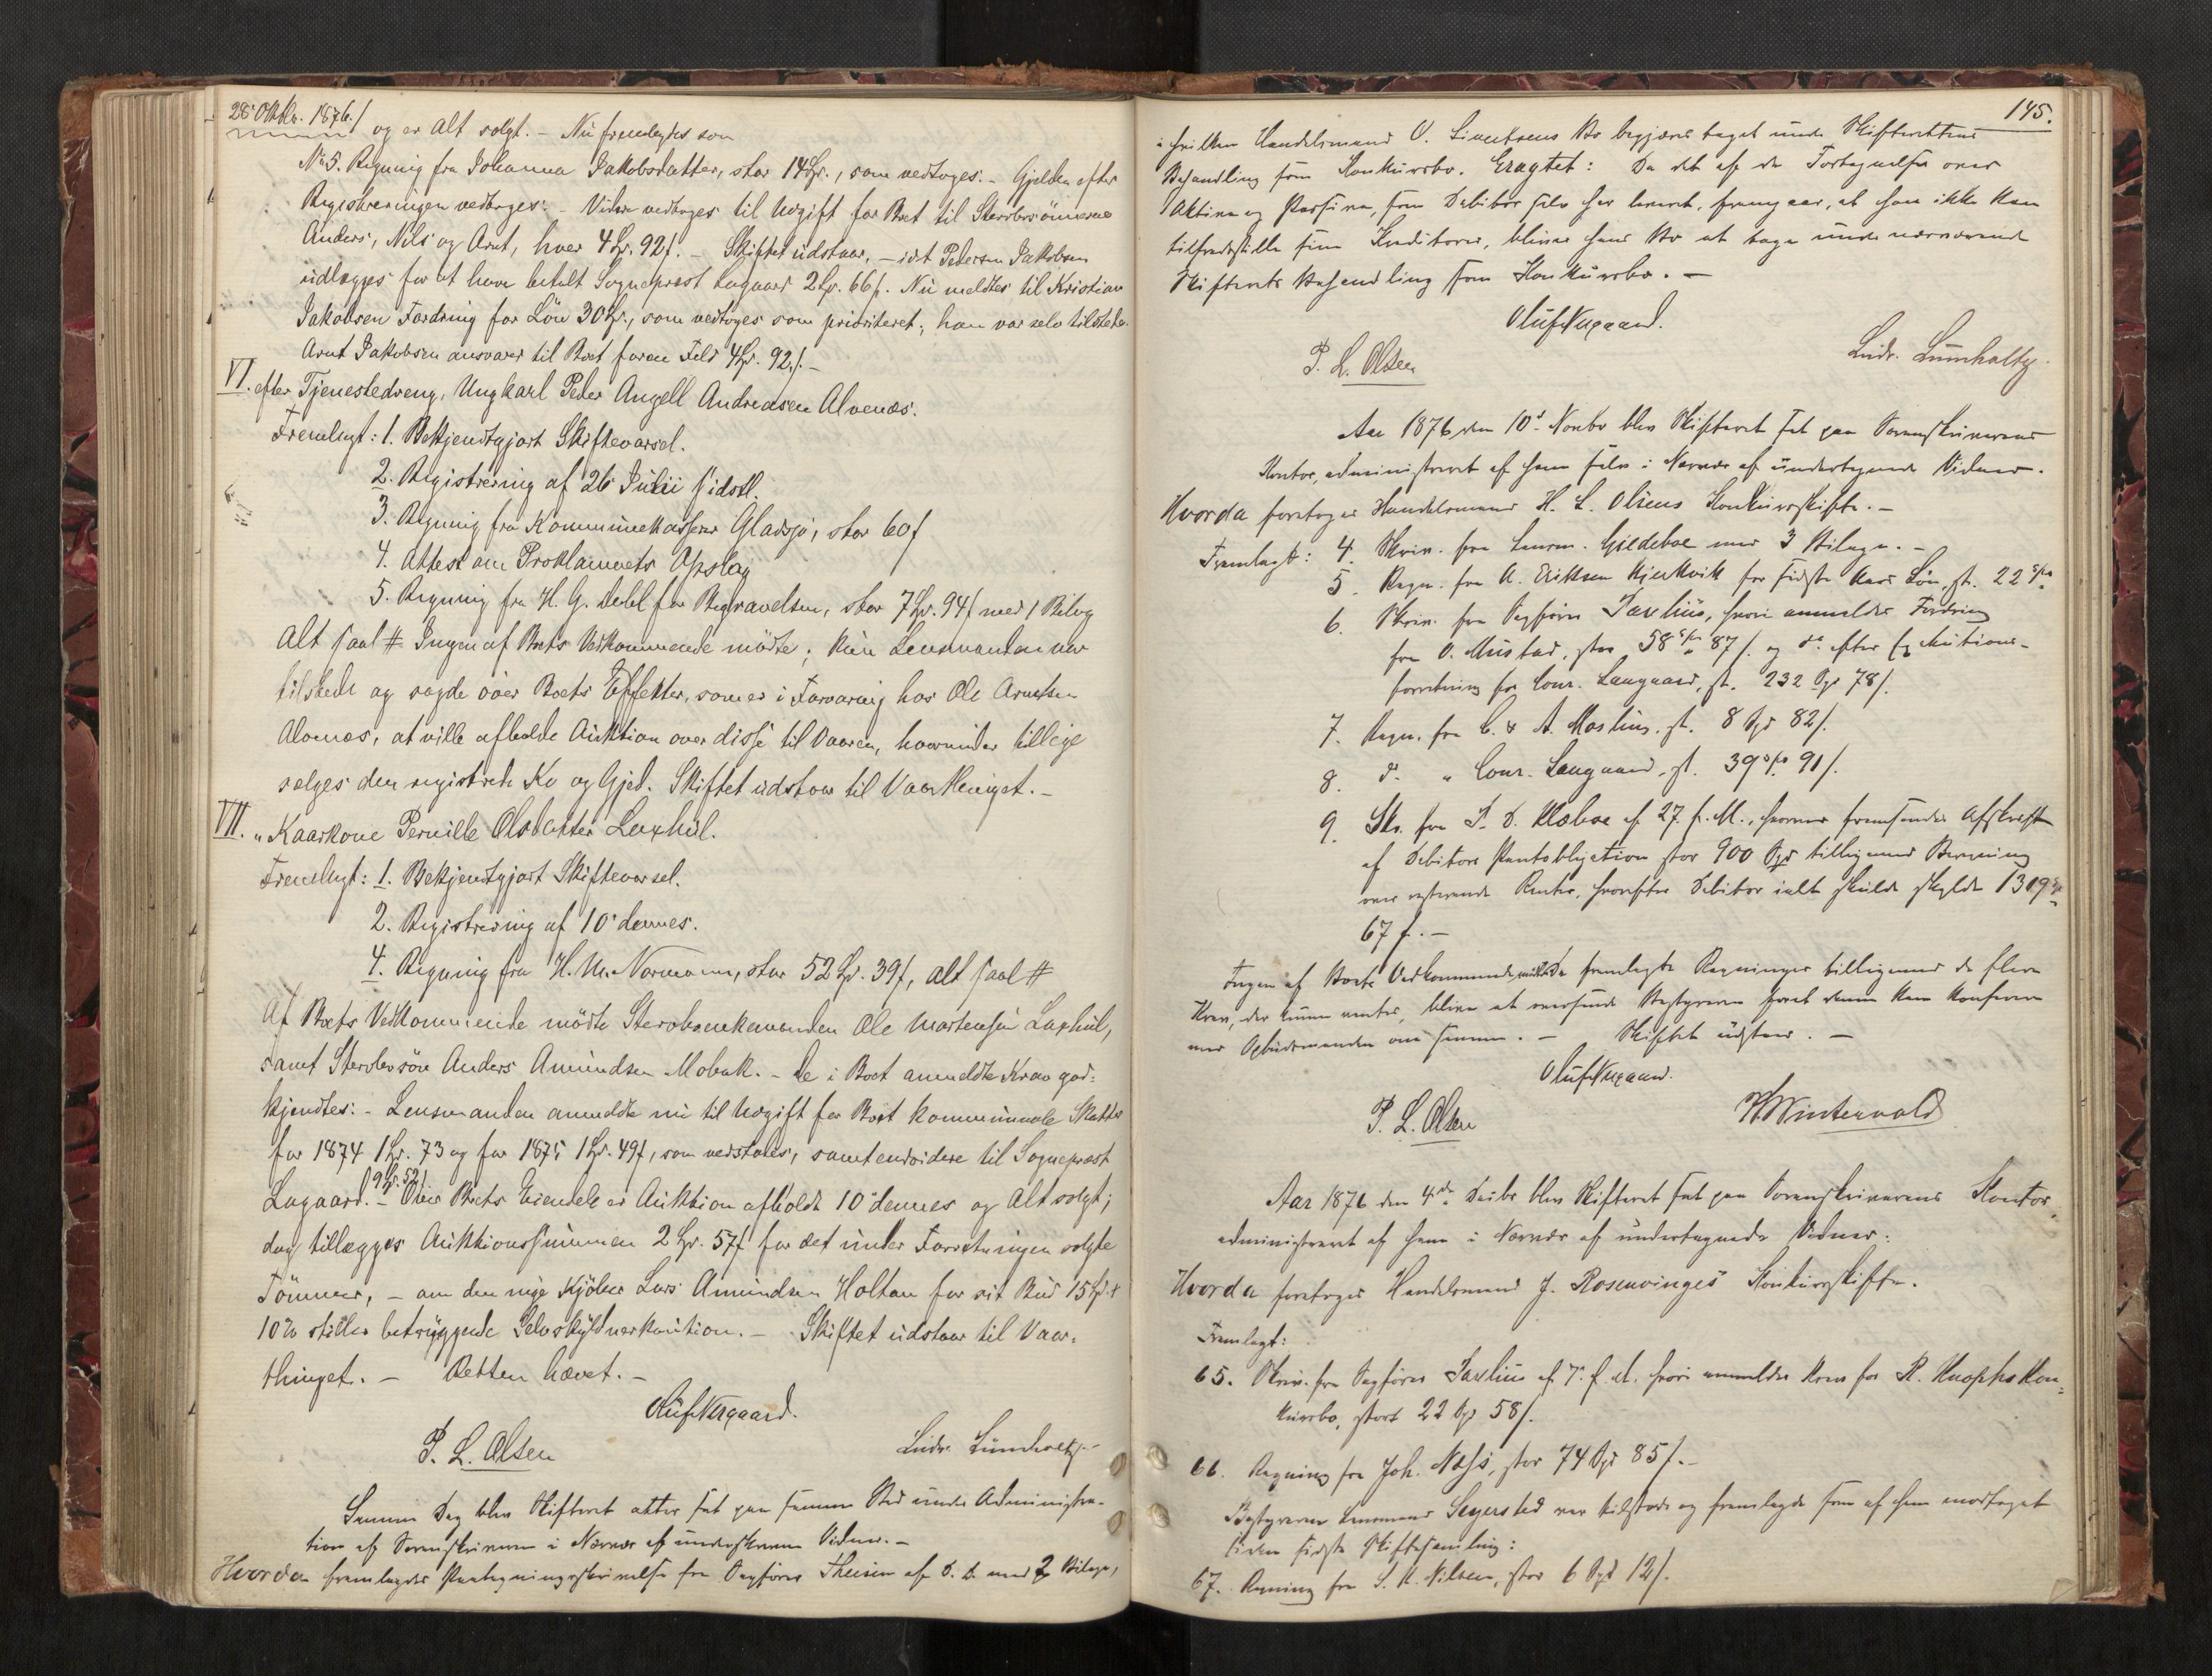 28' Oktbr. 1876./
og er Alt solgt. - Nu fremlagdes som
No 5. Regning fra Johanna Jakobsdatter, stor 14 Kr., som vedtoges. - Gjelden efter
Registreringen vedtoges. - Videre vedtoges til Udgift for Boet til Stervbosönnerne
Anders, Nils og Arnt, hver 4 Kr. 92 f. - Skiftet udstaar, - idet Pedersen Jakobsen
udlægges for at have betalt Sogneprest Lagaard 2 Kr. 66 f. Nu meldtes til Kristian
Jakobsen Fordring for Lön 30 Kr., som vedtoges som prioriteret; han var selv tilstede.
Arnt Jakobsen ansvarer til Boet for en Feld 4 Kr. 92 f. -
VI. efter Tjenestedreng, Ungkarl Peder Angell Andreasen Alvenæs.
Fremlagt: 1. Bekjendtgjort Skiftevarsel.
2. Registrering af 26 Julii sidstl.
3. Regning fra Kommunekasserer Gladsjö, stor 60 f
4. Attest om Proklamaets Opslag
5. Regning fra H. G. Debl for Begravelsen, stor 7 Kr. 94 f med 1 Bilag
Alt saal # Ingen af Boets Vedkommende mödte; kun Lensmanden var
tilstede og sagde over Boets Effekter, som er i Forvaring hos Ole Arntsen
Alvenes, at ville afholde Auktion over disse til Vaaren, hvorunder tillige
selges den registrerte Ko og Gjed. Skiftet udstaar til Vaarthinget. -
VII. " Kaarkone Pernille Olsdatter Laxhul.
Fremlagt: 1. Bekjendtgjort Skiftevarsel.
2. Registrering af 10' dennes.
4. Regning fra H. M. Normann, stor 52 Kr. 39 f, Alt saal #
Af Boets Vedkommende mödte Stervboenkemanden Ole Martensen Laxhul,
samt Stervbosön Anders Amundsen Mobak. - De i Boet anmeldte Krav god-
kjendtes. - Lensmanden anmeldte nu til Udgift for Boet kommunale Skatter
for 1874 1 Kr. 73 og for 1875 1 Kr. 49 f, som vedtoges, samt endvidere til Sogneprest
Lagaard 9 Kr. 52 f. - Over Boets Eiendele er Auktion afholdt 10' dennes og Alt solgt;
dog tillægges Auktionssummen 2 Kr. 57 f for det under Forretningen solgte
Tömmer, - om den nye Kjöber Lars Amundsen Holtan for sit Bud 15 Kr. +
10% stiller betryggende Selvskyldnerkaution. - Skiftet udstaar til Vaar-
thinget. - Retten hævet. -
Oluf Nergaard.
P. L. Olsen
Ludv. Lumholtz.
Samme Dag blev Skifteret atter sat paa samme Sted under Administra-
tion af Sorenskriveren i Nærvær af underskrevne Vidner. -
Hvorda fremlagdes Paategningsskrivelse fra Sagförer Theisen af D. D. med 2 Bilage,
145.
i hvilken Handelsmand O. Sivertsens Bo begjæres taget under Skifterettens
Behandling som Konkursbo. Eragtet: Da det af de Fortegnelser over
Aktiva og Passiva, som Debitor selv har leveret, fremgaar, at han ikke kan
tilfredsstille sine Kreditorer, bliver hans Bo at tage under nærværende
Skifterets Behandling som Konkursbo. -
Oluf Nergaard.
P. L. Olsen
Ludv. Lumholtz.
Aar 1876 den 10d Novbr blev Skifteret sat paa Sorenskriverens
Kontor, administreret af ham selv i Nærvær af undertegnede Vidner.
Hvorda foretoges Handelsmand H. L. Olsens Konkursskifte. -
Fremlagt: 4. Skriv. fra Lensm. Gildeboe med 3 Bilage. -
5. Regn. fra A. Eriksen Kjerkvik for sidste Aars Lön, st. 22 Spd.
6. Skriv. fra Sagförer Saxlund, hvori anmeldes Fordring
fra O. Mustad, stor 58 Spd 87 f. og do. efter Exekutions-
forretning for Conr. Langaard, st. 232 Spd 78 f.
7. Regn. fra C. & A. Mostue, st. 8 Spd 82 f.
8. do. " Conr. Langaard, st. 39 Spd. 91 f.
9. Skr. fra J. D. Klæboe af 27. f. M., hvormed fremsendes Afskrift
af Debitors Pantobligation stor 900 Spd tilligemed Beregning
over resterende Renter, hvorefter Debitor ialt skulde skylde 1319 Spd
67 f. -
Ingen af Boets Vedkommende mödte. De fremlagte Regninger tilligemed de flere
Krav, der kunne ventes, blive at oversende Bestyreren forat denne kan konferere
med Opbudsmanden om samme. - Skiftet udstaar. -
Oluf Nergaard.
P. L. Olsen
H. Wintervold
Aar 1876 den 4de Decbr blev Skifteret sat paa Sorenskriverens Kontor,
administreret af ham i Nærvær af undertegnede Vidner.
Hvorda foretoges Handelsmand J. Rosenvinges Konkursskifte.
Fremlagt:
65. Skriv. fra Sagförer Saxlund af 7. f. M. hvori anmeldes Krav for R. Knophs Kon-
kursbo, stort 22 Spd 58 f.
66. Regning fra Joh. Næss, stor 74 Spd 85 f. -
Bestyreren Lensmand Segersted var tilstede og fremlagde som af ham modtaget
siden sidste Skiftesamling:
67. Regning fra S. K. Nilsen, stor 6 Spd 12 f.